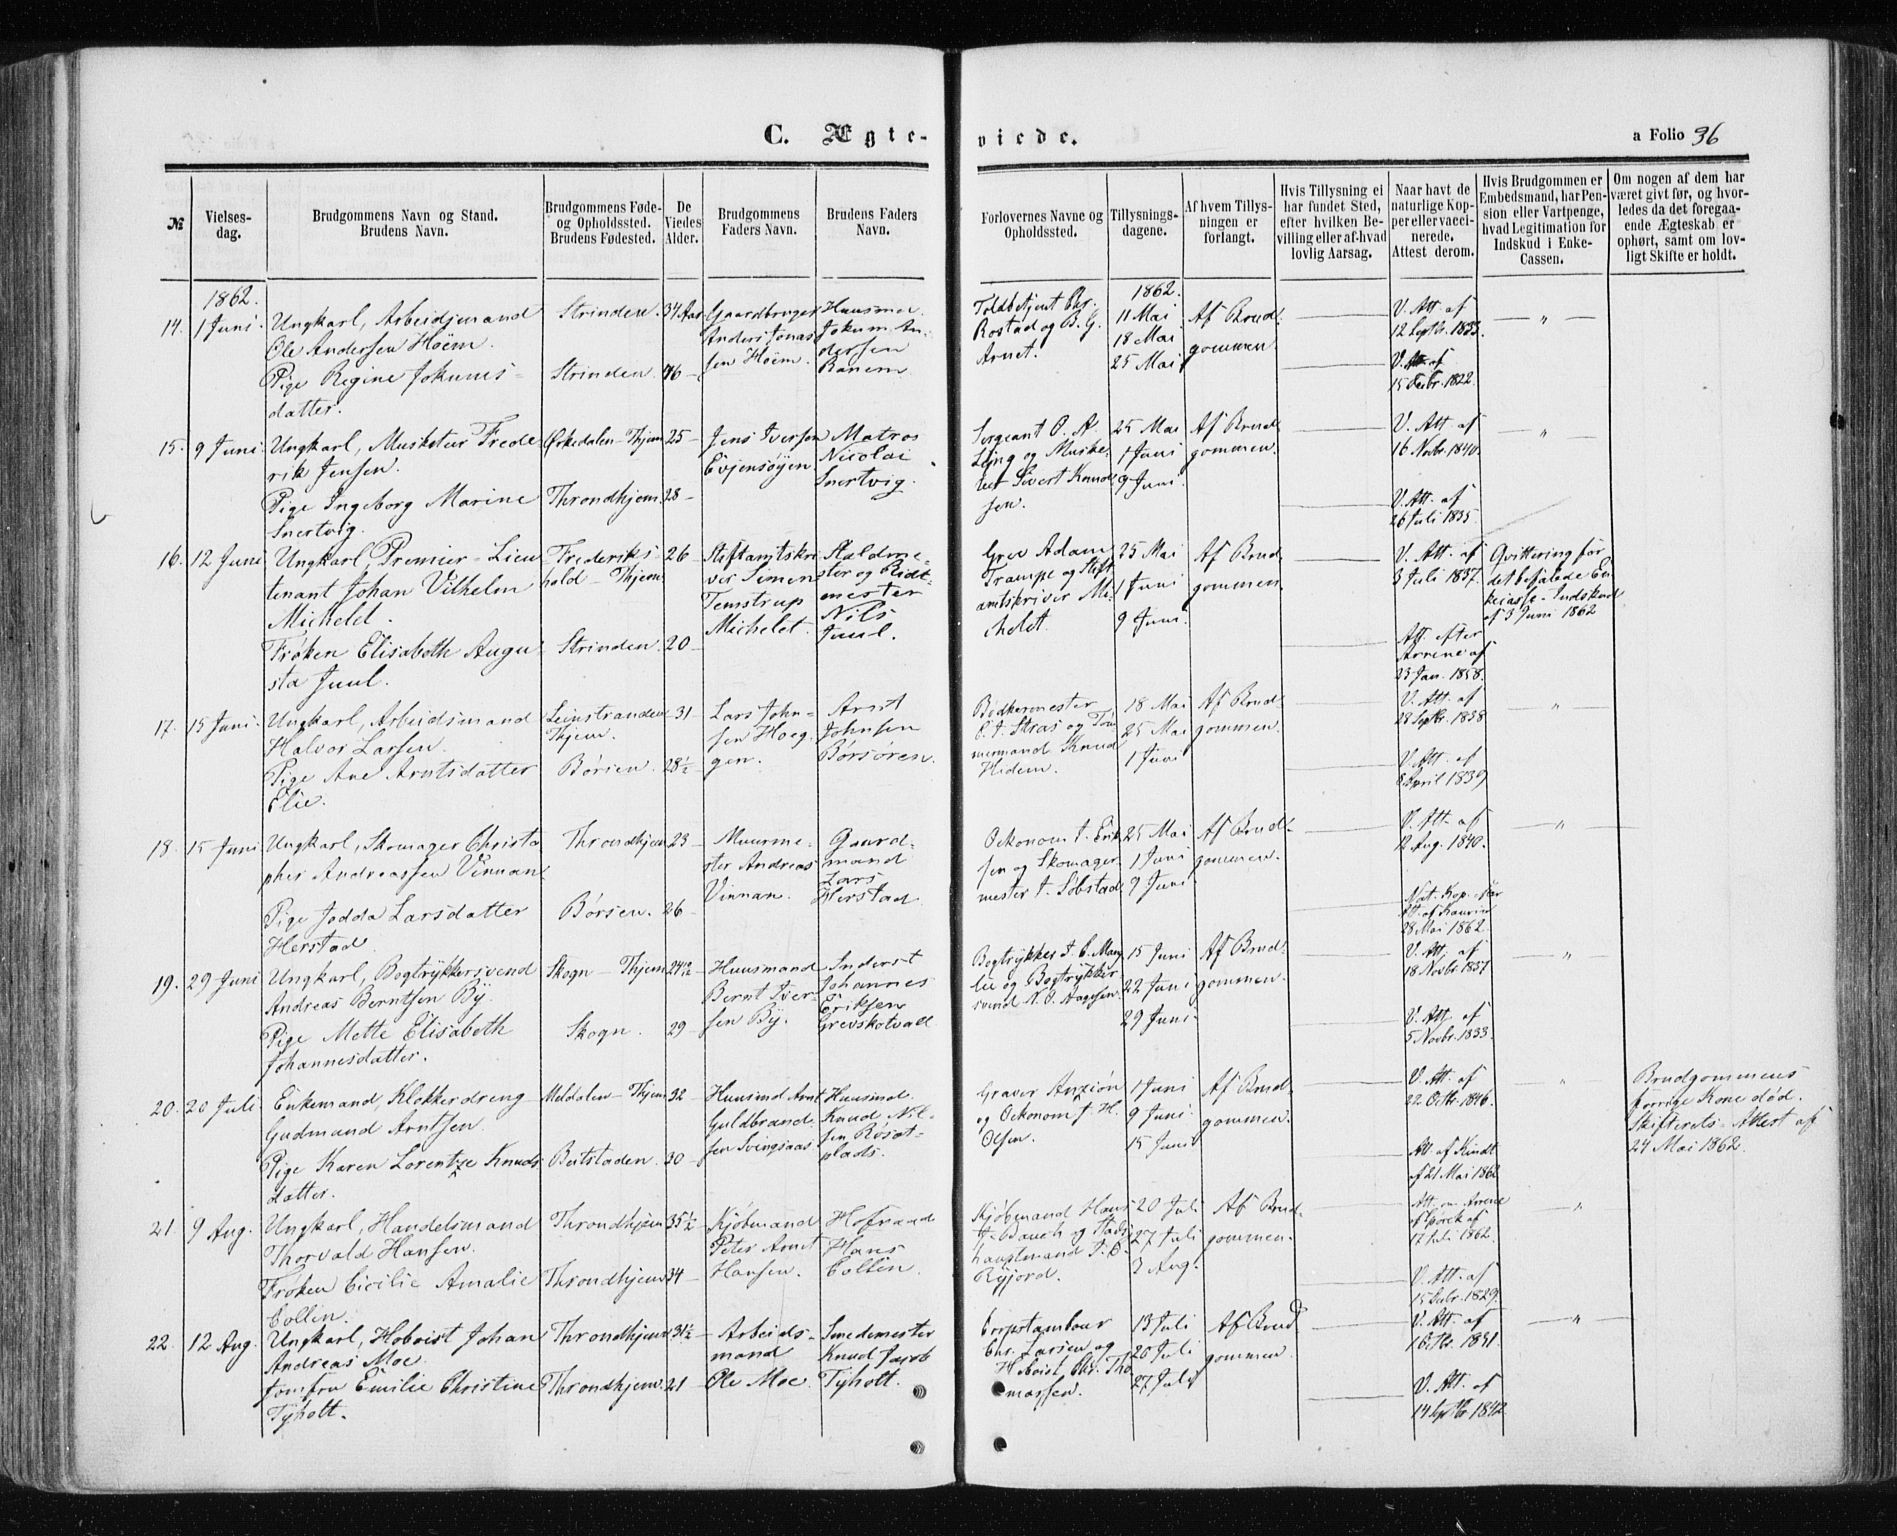 C. Ægte-
viede.
a Folio 36
№
Vielses-
dag.
Brudgommens Navn og Stand.
Brudens Navn.
Brudgommens Føde-
og Opholdssted.
Brudens Fødested.
De
Viedes
Alder.
Brudgommens
Faders Navn.
Brudens Faders
Navn.
Forlovernes Navne og
Opholdssted.
Tillysnings-
dagene.
Af hvem Tillys-
ningen er
forlangt.
Hvis Tillysning ei
har fundet Sted,
efter hvilken Be-
villing eller af hvad
lovlig Aarsag.
Naar havt de
naturlige Kop-
per eller vacci-
nerede.
Attest derom.
Hvis Brudgommen er
Embedsmand, har Pen-
sion eller Vartpenge,
hvad Legitimation for
Indskud i Enke-
Cassen.
Om nogen af dem har
været givt før, og hvor-
ledes da det foregaa-
ende Ægteskab er
ophørt, samt om lov-
ligt Skifte er holdt.
1862.
14. 1 Juni.
Ungkarl, Arbeidsmand
Ole Andersen Höem.
Pige Regine Jokums-
datter.
Strinden.
Strinden.
34 Aar
46 -
Gaardbruger
Anders Jonas
sen Höem.
Huusmd.
Jokum An-
dersen
Ranem.
Toldbetjent Chr.
Rostad og B. G.
Arnet.
1862.
11 Mai
18 Mai
25 Mai
Af Brud-
gommen
V. Att. af
12 Septbr. 1833.
V. Att. af
15 Decbr. 1822.
15. 9 Juni.
Ungkarl, Musketeer Frede
rik Jensen.
Pige Ingeborg Marine
Snertvig.
Ørkedalen - Thjem
Throndhjem.
25 -
28 -
Jens Iversen
Evjensöyen
Matros
Nicolai
Snertvig.
Sergeant O. A.
Leing og Muske-
teer Sivert Knud
sen.
25 Mai
1 Juni
9 Juni
Af Brud-
gommen.
V. Att. af
16 Novbr. 1840.
V. Att. af
26 Juli 1835.
16. 12 Juni
Ungkarl, Premier-Lieu
tenant Johan Vilhelm
Michelet.
Frøken Elisabeth Augu
sta Juul.
Frederiks-
hald - Thjem
Strinden.
26 -
20 -
Stiftamtskri
ver Simen
Temstrup
Michelet.
Staldme-
ster og Ridt-
mester
Nils
Juul.
Grev Adam
Trampe og Stift
amtskriver Mi-
chelet.
25 Mai
1 Juni
9 Juni.
Af Brud
gommen
V. Att. af
3 Juli 1837.
Att. efter
Arrene af
23 Jan. 1858.
Qvittering for
det befalede En
kecasse-Indskud
af 3 Juni 1862
17. 15 Juni.
Ungkarl, Arbeidsmand
Halvor Larsen.
Pige Ane Arntsdatter
Elie.
Leinstranden
Thjem.
Börsen.
31 -
28½ -
Lars John-
sen Hoeg-
gen.
Arnt
Johnsen
Börsören.
Bødkermester
C. J. Stras og Töm
mermand Knud
Hidem.
18 Mai
25 Mai
1 Juni
Af Brud-
gommen.
V. Att. af
28 Septbr. 1838
V. Att. af
8 April 1839
18. 15 Juni
Ungkarl, Skomager Christo
pher Andreassen Vinnan
Pige Jodda Larsdatter
Herstad
Throndhjem
Börsen.
23
26 -
Muurme-
ster Andreas
Vinnan.
Gaard-
mand
Lars
Herstad
Oekonom J. Erik
sen og Skomager
mester J. Söbstad
25 Mai
1 Juni
9 Juni
Af Brud-
gommen.
V. Att. af
12 Aug. 1840.
Nat. Kop.
28 Mai 1862.
19. 29 Juni
Ungkarl, Bogtrykkersvend
Andreas Berntsen By.
Pige Mette Elisabeth
Johannesdatter.
Skogn - Thjem
Skogn.
24
29 -
Huusmand
Bernt Iver-
sen By.
Inderst
Johannes
Eriksen
Grevskotvald
Bogtrykker
og Bogtrykker
svend
15 Juni
22 Juni
29 Juni
Af Brud-
gommen.
V. Att. af
18 Novbr. 1837
V. Att. af
5 Novbr. 1833.
20. 20 Juli.
Enkemand, Klokkerdreng
Gudmund Arntsen.
Pige Karen Lorentze Knuds
datter.
Meldalen - Thjem
Beitstaden.
32 -
30 -
Huusmd Arnt
Guldbrand-
sen Svingsaas
Huusmd.
Knud Nil-
sen Røsat-
plads.
Graver Anzion
og Oekonom J. H.
Olsen.
1 Juni
9 Juni
15 Juni
Af Brud-
gommen.
V. Att. af
22 Octbr. 1846.
Att. af Kindt
af 21 Mai 1862
Brudgommens
forrige Kone død.
Skifterets-Attest af
24 Mai 1862.
21. 9 Aug.
Ungkarl, Handelsmand
Thorvald Hansen.
Frøken Cicilie Amalie
Collin.
Throndhjem
Throndhjem
35½ -
34 -
Kjöbmand
Peter Arnt
Hansen.
Hofraad
Hans
Collin.
Kjöbmand Hans
og Stads-
hauptmand
Ryjord.
20 Juli
27 Juli
2 Aug.
Af Brud-
gommen.
Att. om Arrene
17 Juli 1862.
V. Att. af
15 Decbr. 1829.
22. 12 Aug.
Ungkarl, Hoboist Johan
Andreas Moe.
Jomfru Emilie Christine
Tyholt.
Throndhjem
Throndhjem.
31½ -
21 -
Arbeids-
mand
Ole Moe.
Smedemester
Knud Jacob
Tyholt.
Corpstambour
Chr. Larsen og
Hoboist Chr. Tho
massen.
13 Juli
20 Juli
27 Juli
Af Brud
gommen
V. Att. af
1 Octbr. 1831.
V. Att. af
14 Septbr 1842